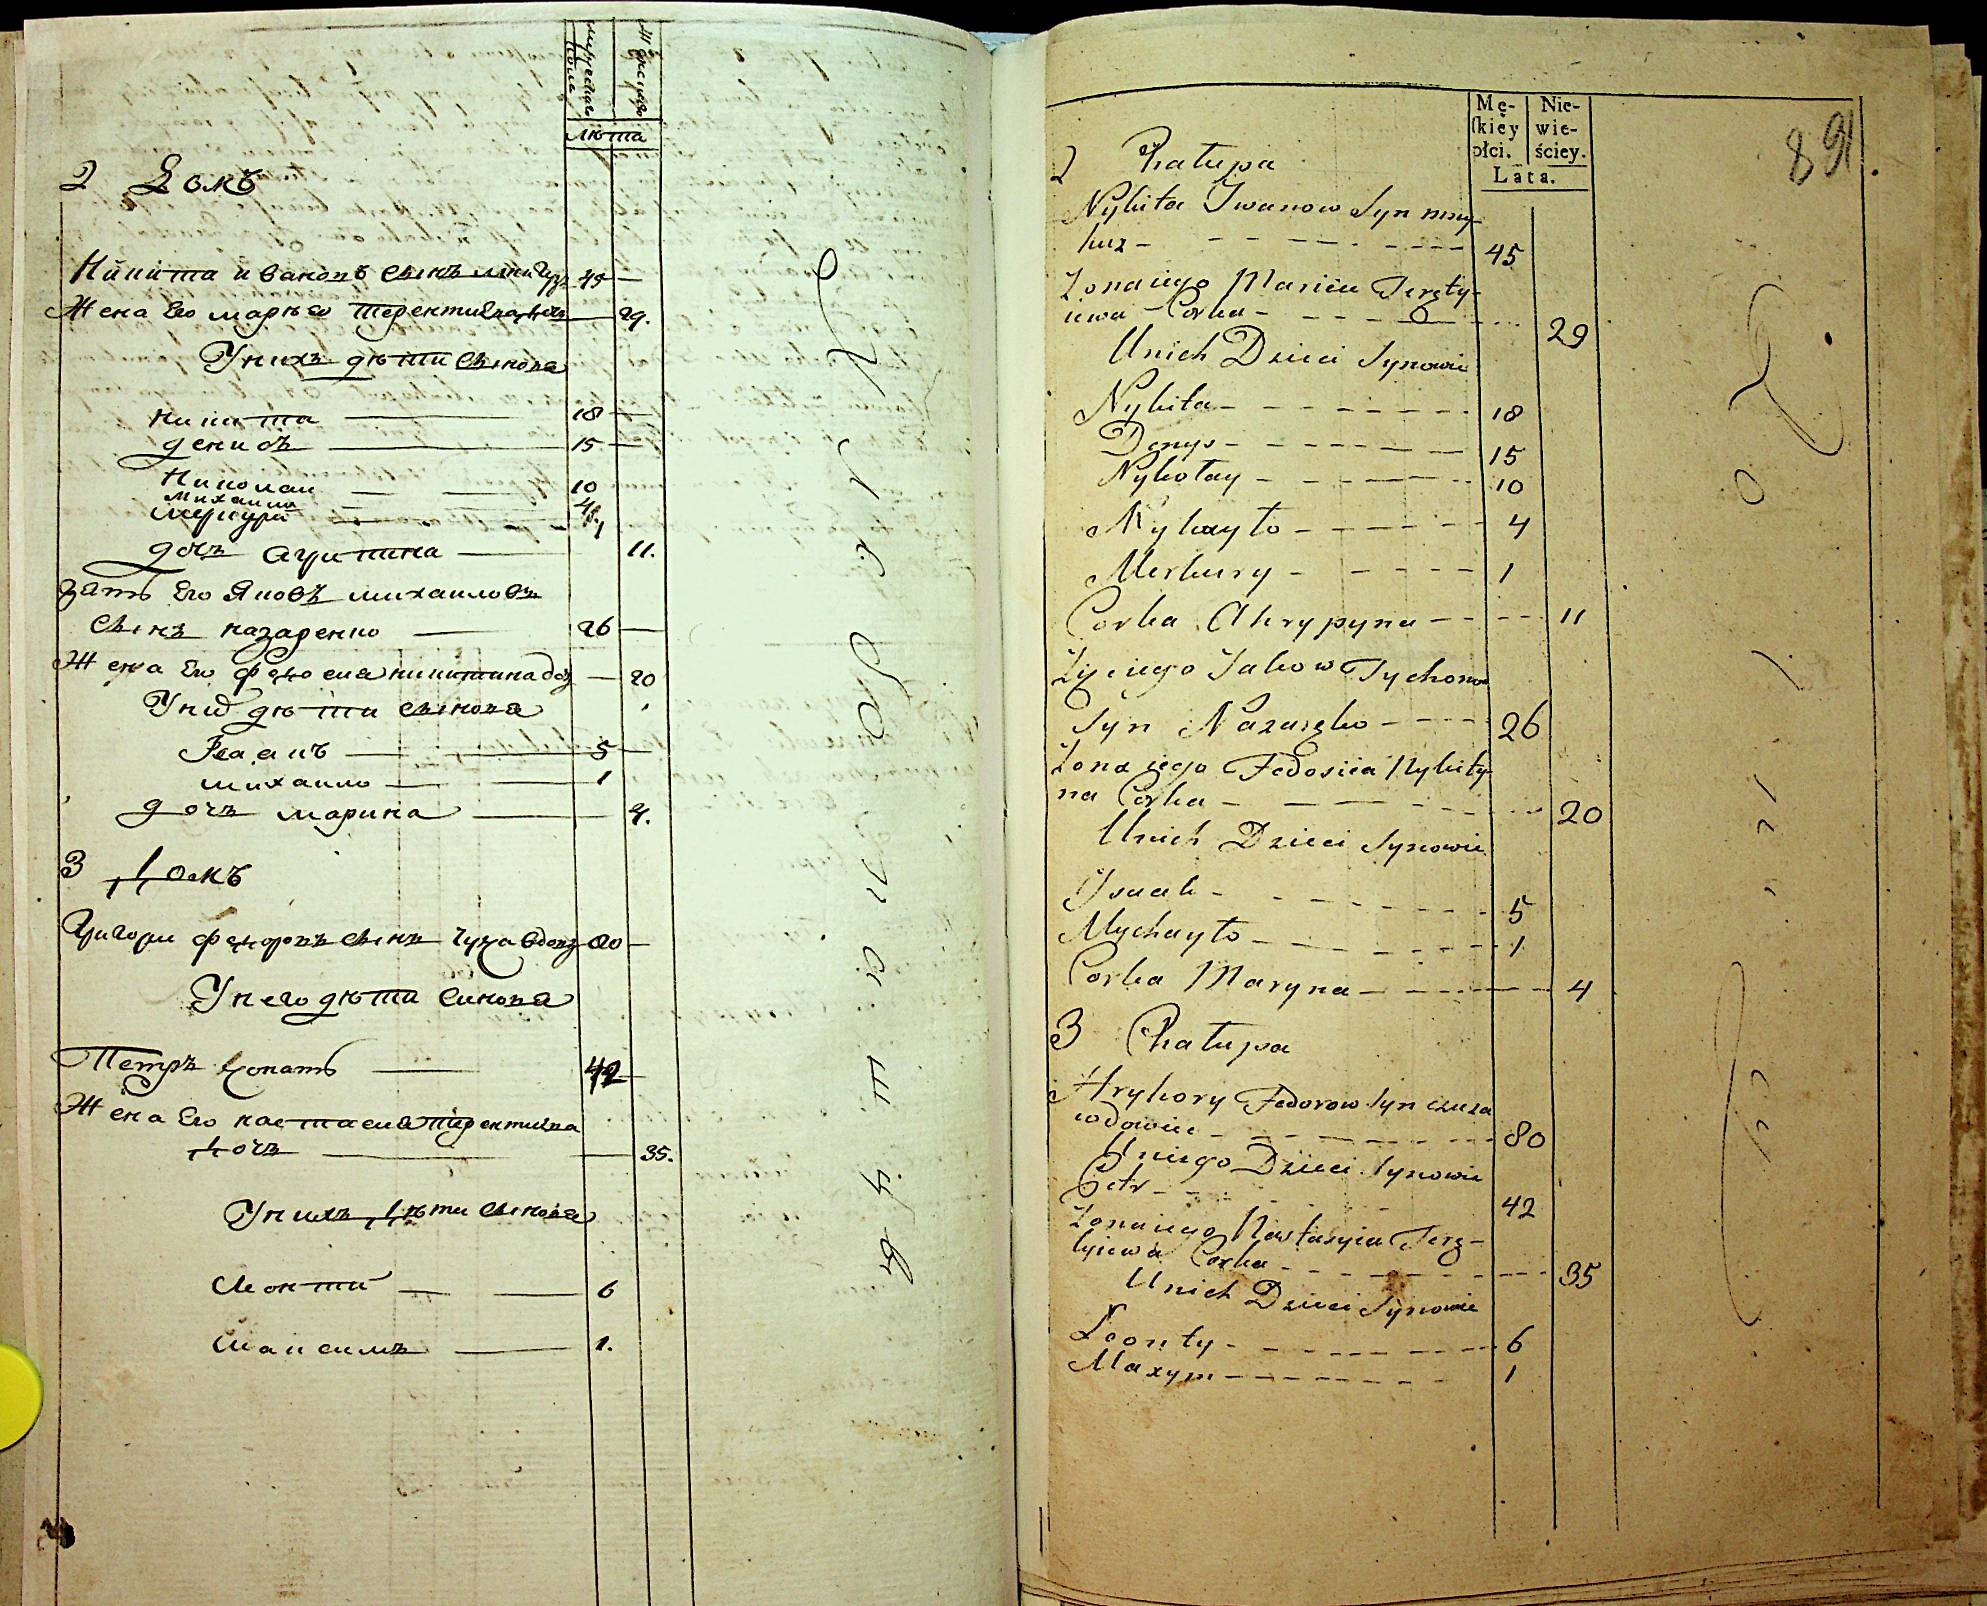 мужеска пола
женска
лѣта
2 Домъ
Никита Ивановъ сынъ 45
Жена его марѣя терентиева дочь 29.
У нихъ дѣти сынова
никита 18
денисъ 15
Николаи 10
михаило 4
меркури 1
дочь агрипина 11.
зять его Яковъ михаиловъ
сынъ назаренко 26
Жена его федосия никитина доч 20
У них дѣти сынова
Исаакъ 5
михаило 1
дочь марина 4.
3 Домъ
Григори федоровъ сынъ вдовец 80
У него дѣти синова
Петръ 42
Жена его настасия терентиева
дочь 35.
У нихъ дѣти сынова
Леонтий 6
Максимъ 1.
Mę-skiey płci.
Nie-wie-ściey.
Lata.
89
2 Chałupa
Nykita Iwanow Syn mny-
45
Zona iego Mariia Teręty-
iewa Corka 29
U nich Dzieci Synowie
Nykita 18
Denys 15
Nykołay 10
Mykayło 4
Merkury 1
Corka Ahrypyna 11
Zięć iego Jakow Tychonow
Syn Nazaręko 26
Zona iego Fedosiia Nykity-
na Corka 20
U nich Dzieci Synowie
Isaak 5
Mychayło 1
Corka Maryna 4
3 Chałupa
Hryhory Fedorow Syn czuza
wdowiec 80
U niego Dzieci Synowie
Petr 42
Zona iego Nastasyia Terę-
tyiewa Corka 35
U nich Dzieci Synowie
Leonty 6
Maxym 1